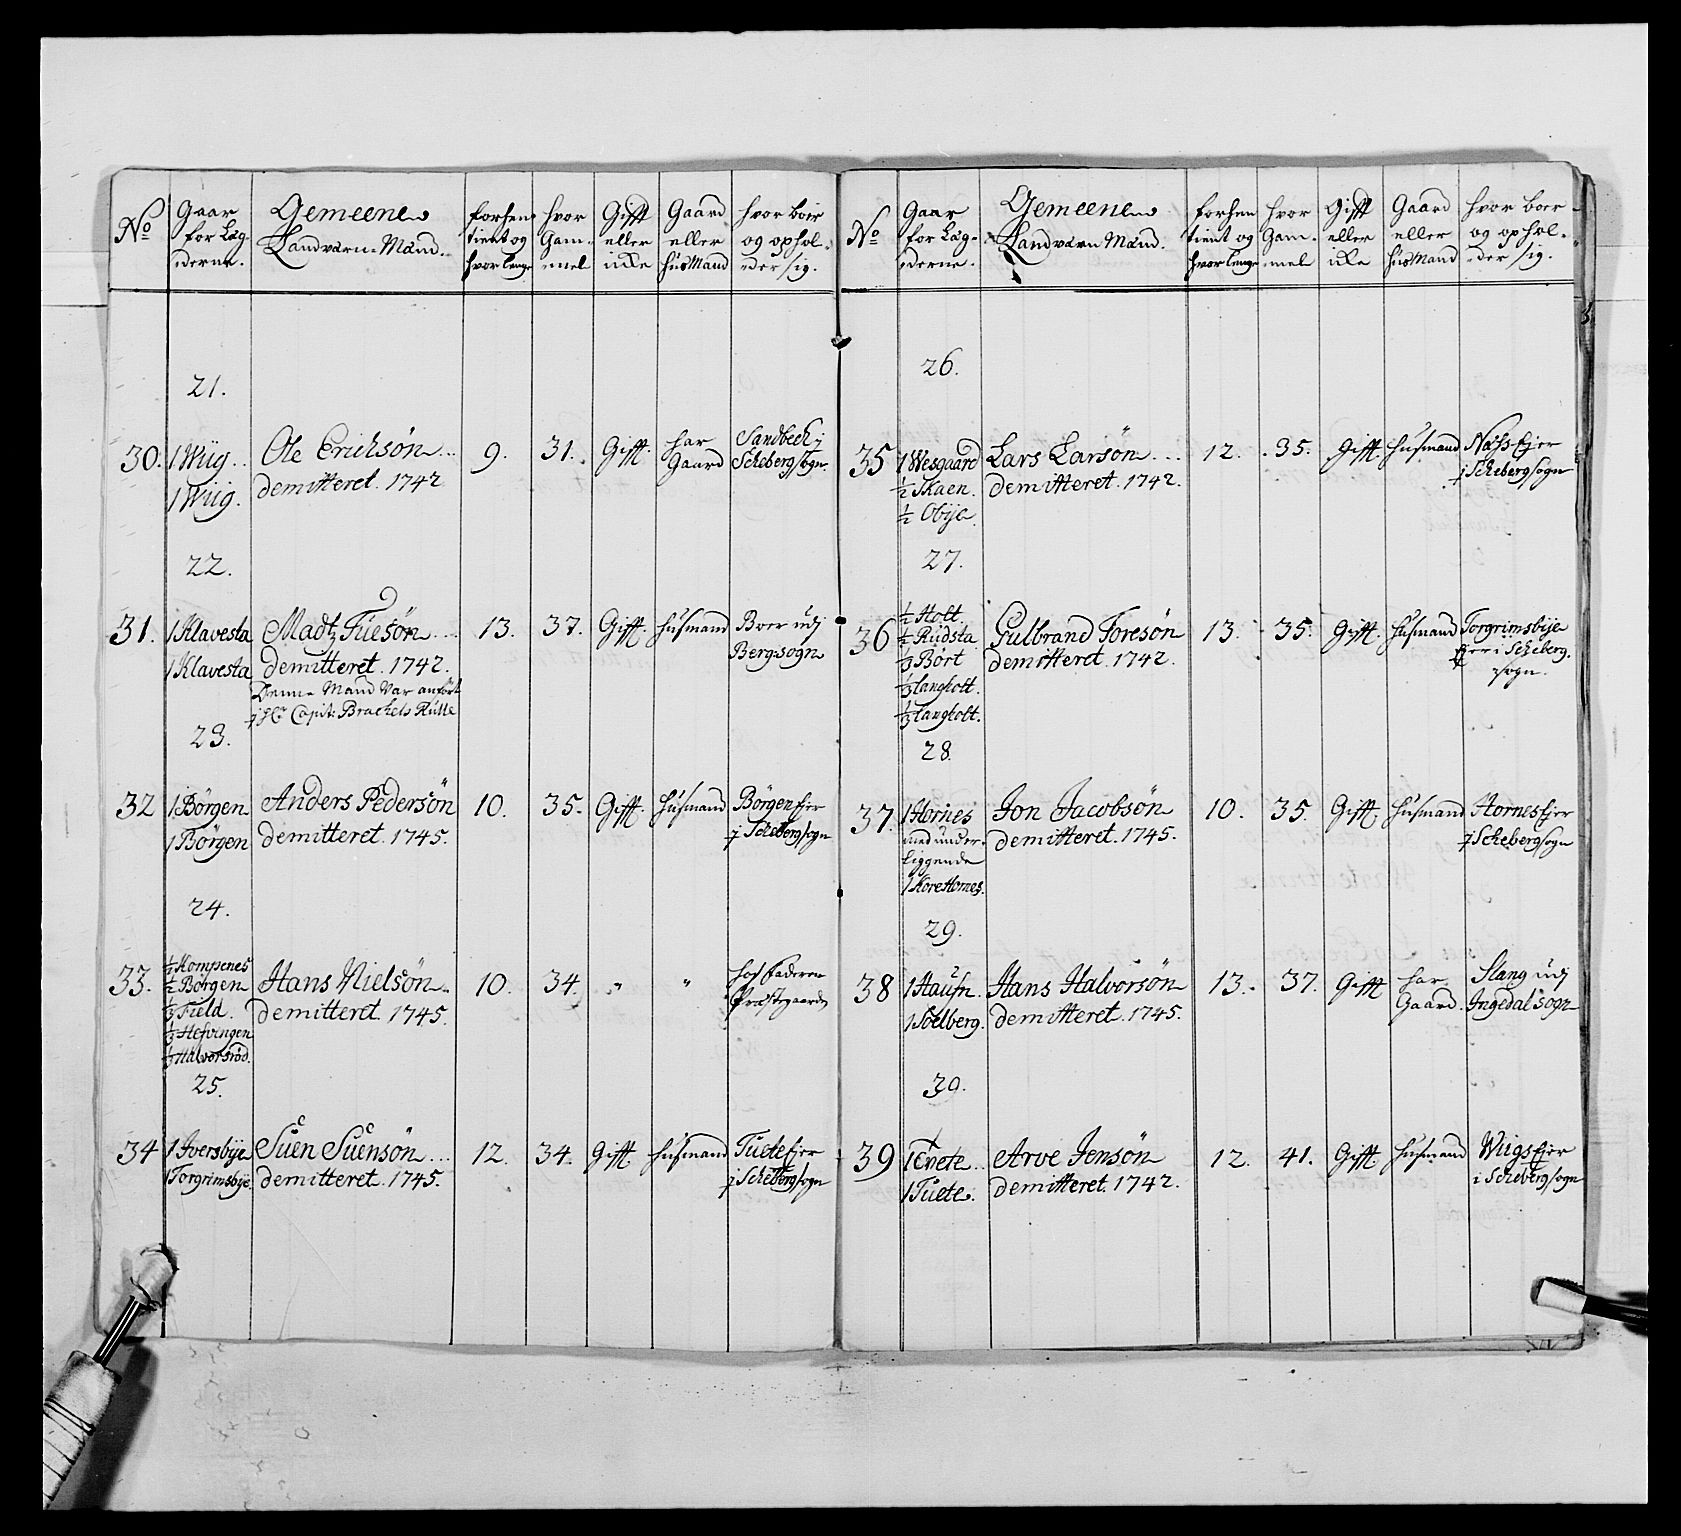 No
Gaar
for Læg-
derne.
Gemeene
Landværn-Mænd.
forhen
tient og
hvor lenge
hvor
Gam-
mel
Gifft
eller
icke
Gaard
eller
husMand
hvor boer
og ophol-
der sig.
21.
30.
1 Wiig
1 Wiig.
Ole Erichsøn
demitteret. 1742
9.
31.
Gifft.
har
Gaard
Sandbech j
Scheberg sogn
22.
31.
1 Klavesta
1 Klavesta
Madtz Tuesøn
demitteret. 1742.
Denne Mand var anført
j Hr Capit: Brachels Rulle
13.
37.
Gifft.
husmand
Boer udj
Berg sogn
23.
32
1 Børgen
1 Børgen
Anders Pedersøn
demitteret. 1745.
10.
35.
Gifft.
husmand
Børgen Ejer
j Scheberg sogn
24.
33.
½ Kompenes
½ Børgen
⅓ Field.
⅓ Hefvingen
⅓ Halvorsrød.
Hans Nielsøn
demitteret. 1745.
10.
34
"
"
hos Faderen
Præstgaarden
25.
34
1 Iversbye
1 Torgrimsbye
Suen Suensøn
demitteret. 1745.
12.
34.
Gifft
husmand
Tuete Ejer
j Scheberg sogn
No
Gaar
for Læg-
derne.
Gemeene
Landværn Mænd.
forhen
tient og
hvor lenge
hvor
Gam-
mel
Gifft
eller
icke
Gaard
eller
husMand
hvor boer
og ophol-
der sig.
26.
35
1 Wesgaard
½ Skaen.
½ Obye
Lars Larsøn
demitteret. 1742.
12.
35.
Gifft.
husmand
Næss Ejer
j Scheberg sogn
27.
36
½ Holt.
½ Rudsta
⅓ Børt
⅓ Langholt.
⅓ Langholt.
Gulbrand Toresøn
demitteret. 1742.
13.
35.
Gifft.
husmand
Torgrimsbye
Ejer i Scheberg.
sogn.
28.
37.
1 Hornes
med under-
liggende
1 Kore Hornes.
Jon Jacobsøn
demitteret. 1745.
10.
35.
Gifft.
husmand
Hornes Ejer
j Scheberg sogn
29.
38
1 Haugn
1 Soelberg.
Hans Halvorsøn
demitteret. 1745.
13.
37.
Gifft
har
Gaard.
Slang udj
Ingedal sogn
30.
39
1 Tvete
1 Tuete.
Arve Jensøn
demitteret. 1742.
12.
41.
Gifft
husmand
Wiigs Ejer
i Scheberg sogn